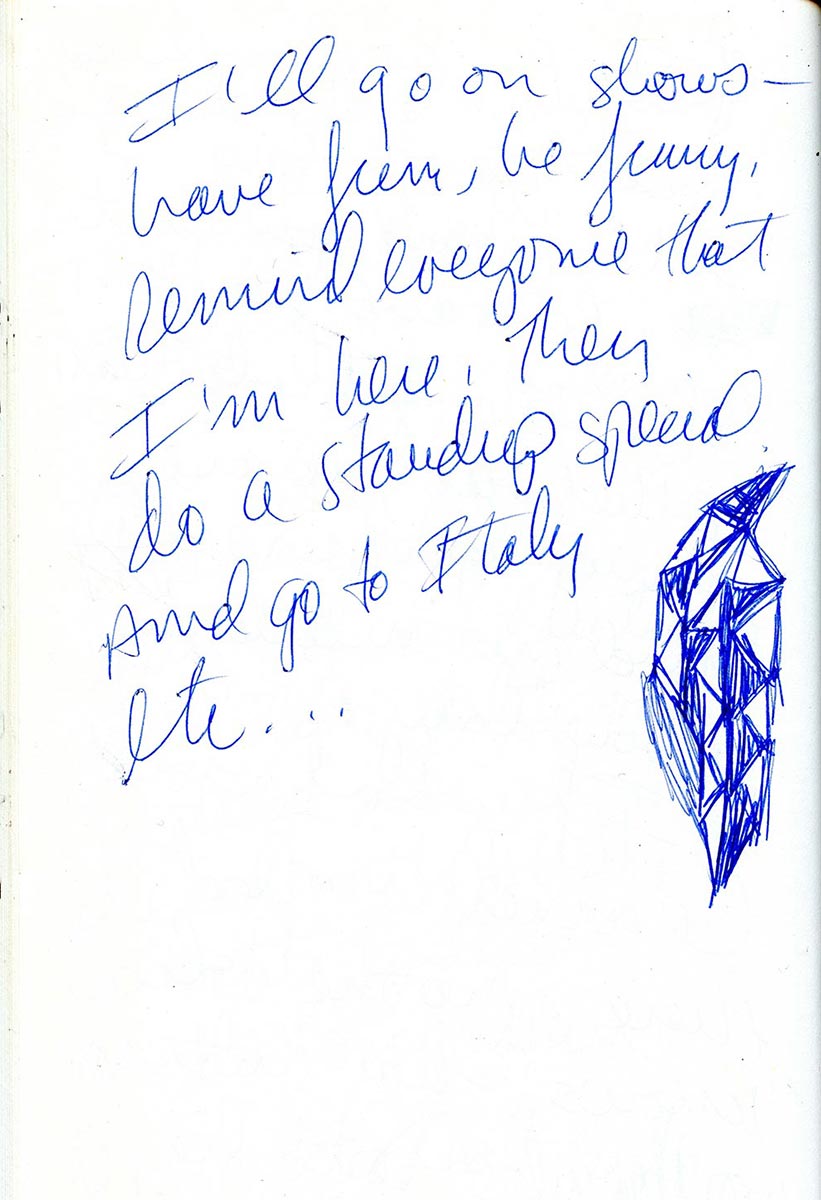 I'll go on shows—
have fun, be funny,
remind everyone that
I'm here. Then
do a standup special
And go to Italy
etc....